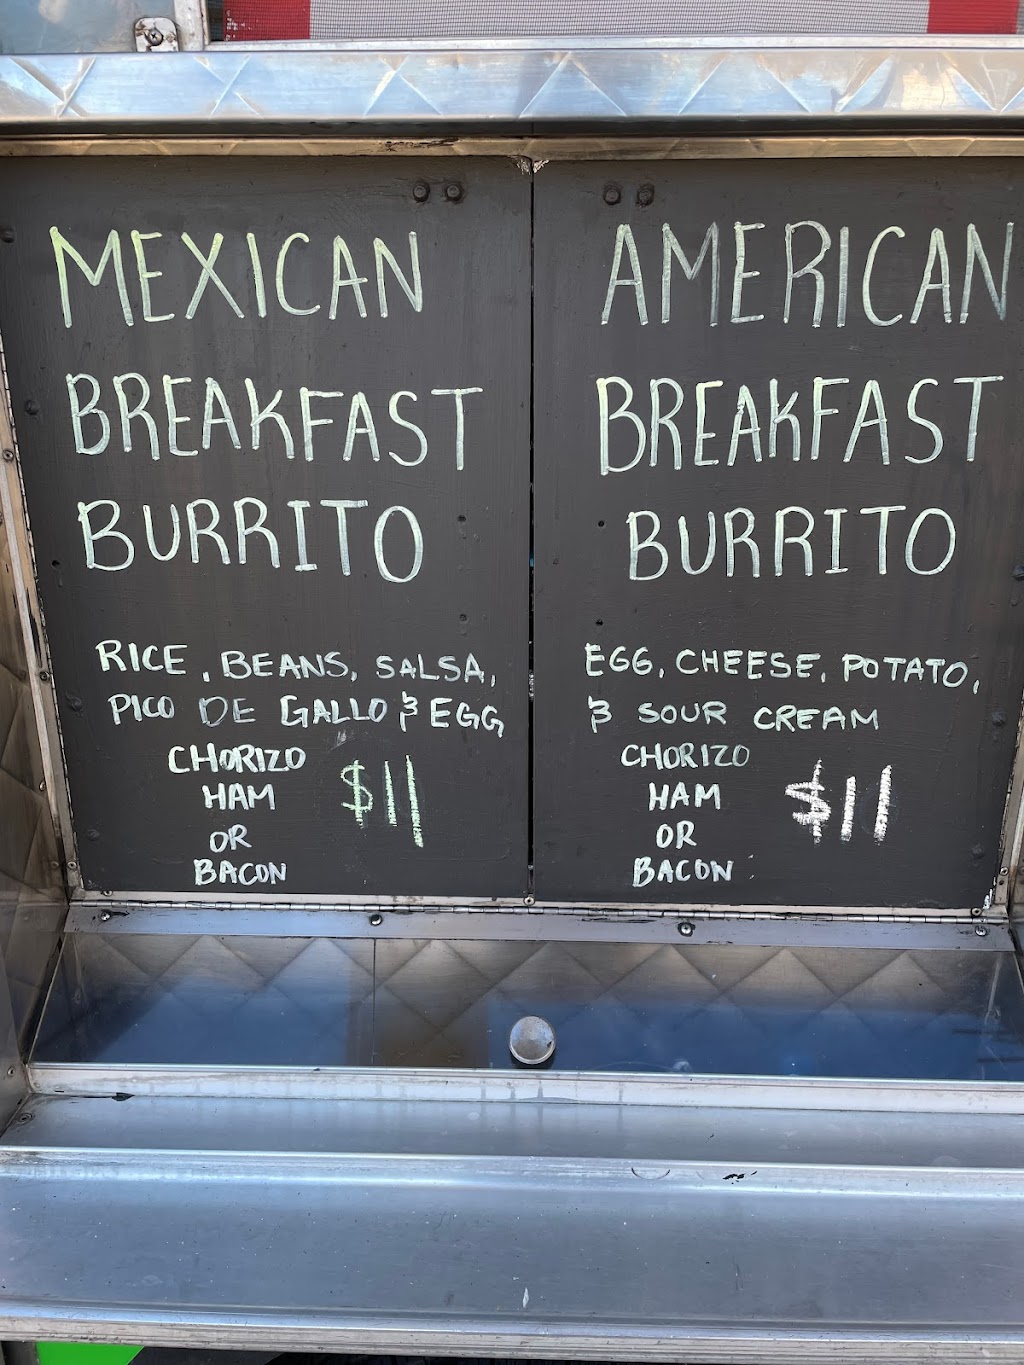 MEXICAN
BREAKFAST
BURRITO
RICE, BEANS, SALSA,
PICO DE GALLO & EGG
CHORIZO
HAM
OR
BACON
$11
AMERICAN
BREAKFAST
BURRITO
EGG, CHEESE, POTATO,
& SOUR CREAM
CHORIZO
HAM
OR
BACON
$11